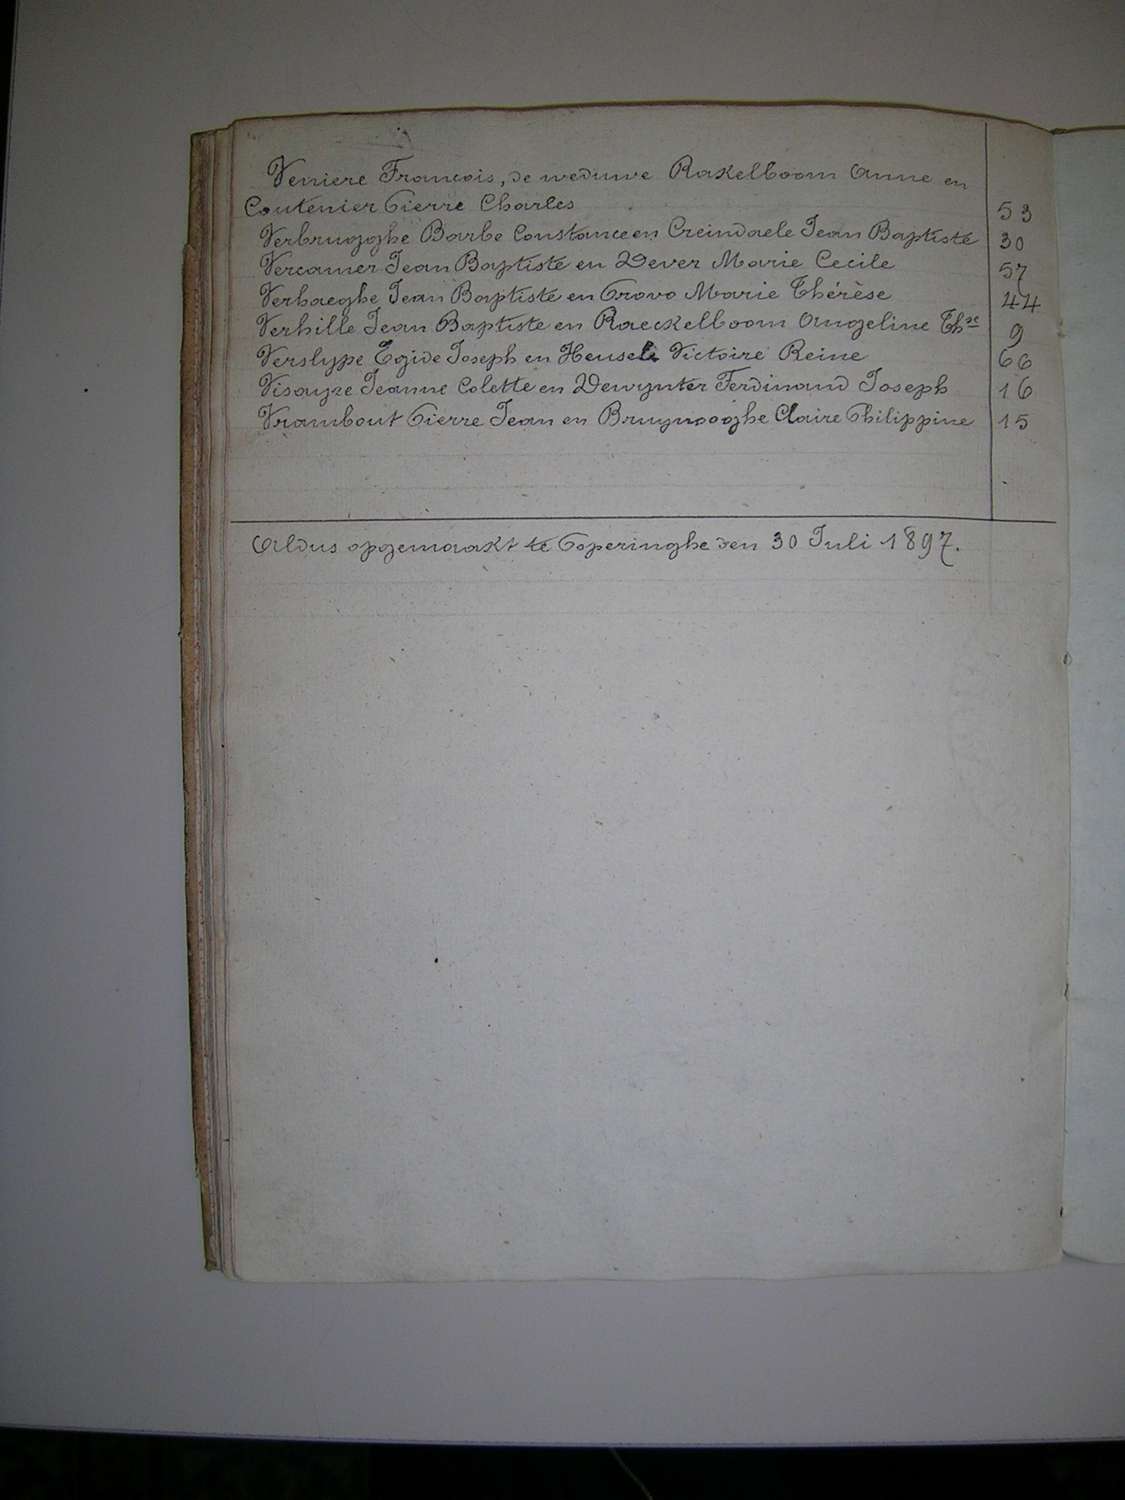 Veniere François, de weduwe Rakelboom Anne en
Coutenier Pierre Charles 53
Verbrugghe Barbe Constance en Creindaele Jean Baptiste 30
Vercamer Jean Baptiste en Dever Marie Cecile 57
Verhaeghe Jean Baptiste en Provo Marie Thérèse 44
Verhille Jean Baptiste en Raeckelboom Angeline Thse 9
Verslype Egide Joseph en Heusele Victoire Reine 66
Visayze Jeanne Colette en Dewynter Ferdinand Joseph 16
Vrambout Pierre Jean en Bruynooghe Claire Philippine 15
Aldus opgemaakt te Poperinghe den 30 Juli 1897.